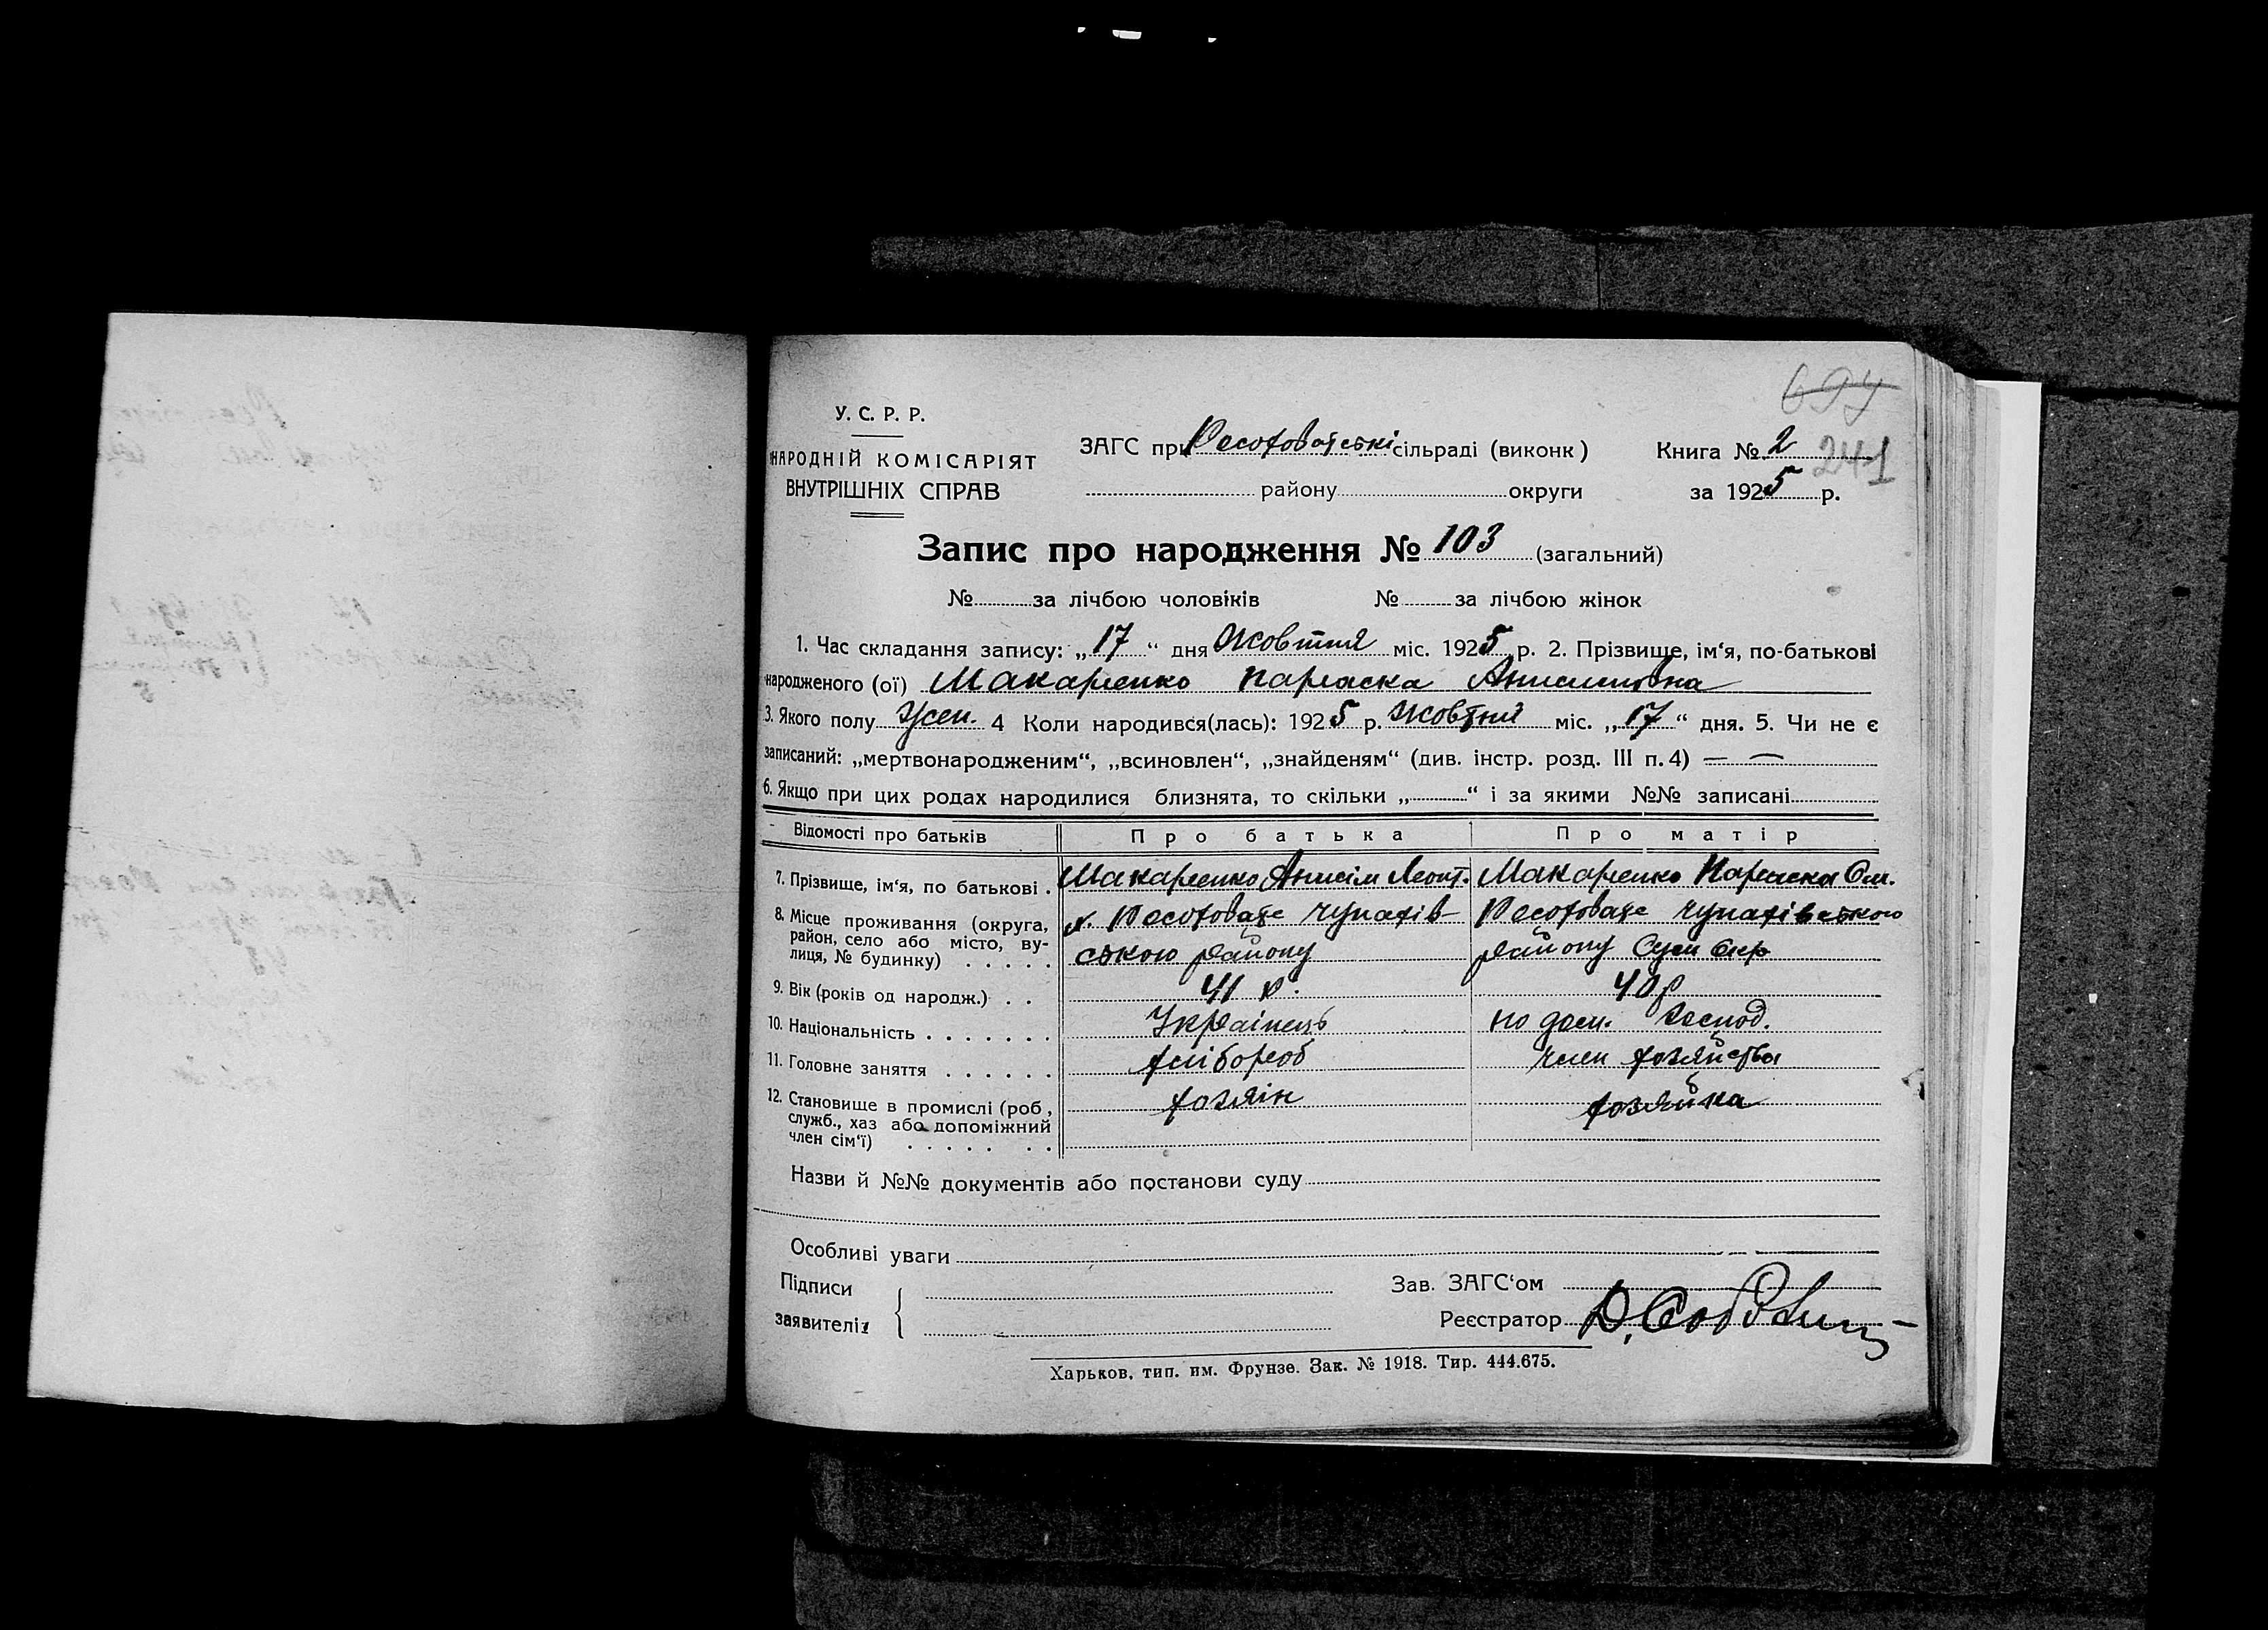 694
У. С. Р. Р.
НАРОДНІЙ КОМІСАРІЯТ
ВНУТРІШНІХ СПРАВ
ЗАГС при сільраді (виконк)
району округи
Книга № 2
241
за 1925 р.
Запис про народження № 103 (загальний)
№ за лічбою чоловіків № за лічбою жінок
1. Час складання запису: „17“ дня Жовтня міс. 1925 р. 2. Прізвище, ім‘я, по-батькові
народженого (ої) Макаренко Параска Анисимовна
3. Якого полу Жен. 4 Коли народився(лась): 1925 р. Жовтня міс. „17“ дня. 5. Чи не є
записаний: „мертвонародженим“, „всиновлен“, „знайденям“ (див. інстр. розд. III п. 4) — —
6. Якщо при цих родах народилися близнята, то скільки „ “ і за якими №№ записані
Відомості про батьків Про батька Про матір
7. Прізвище, ім‘я, по батькові . Макаренко Анисім Леонт. Макаренко Параска
8. Місце проживання (округа,
район, село або місто, ву-
лиця, № будинку) . . . . .
х. Чупахів- Чупахівського
ського району району Сум Окр
9. Вік (років од народж.) . . 41 р. 40 р
10. Національність . . . . . . . Українець по дом. господ.
11. Головне заняття . . . . . . хлібороб член хозяйства
12. Становище в промислі (роб,
служб., хаз або допоміжний
член сім‘ї) . . . . . . .
хозяін хозяйка
Назви й №№ документів або постанови суду
Особливі уваги
Підписи
заявителів
Зав. ЗАГС‘ом
Реєстратор
Харьков, тип. им. Фрунзе. Зак. № 1918. Тир. 444.675.